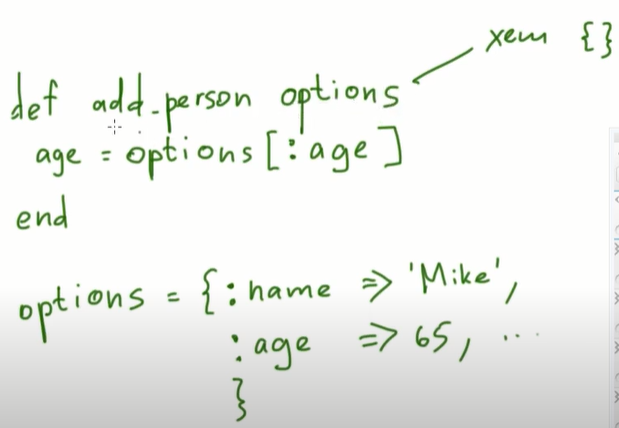 хеш {}
def add_person options
age = options[:age]
end
options = {:name => 'Mike',
:age => 65, ...
}